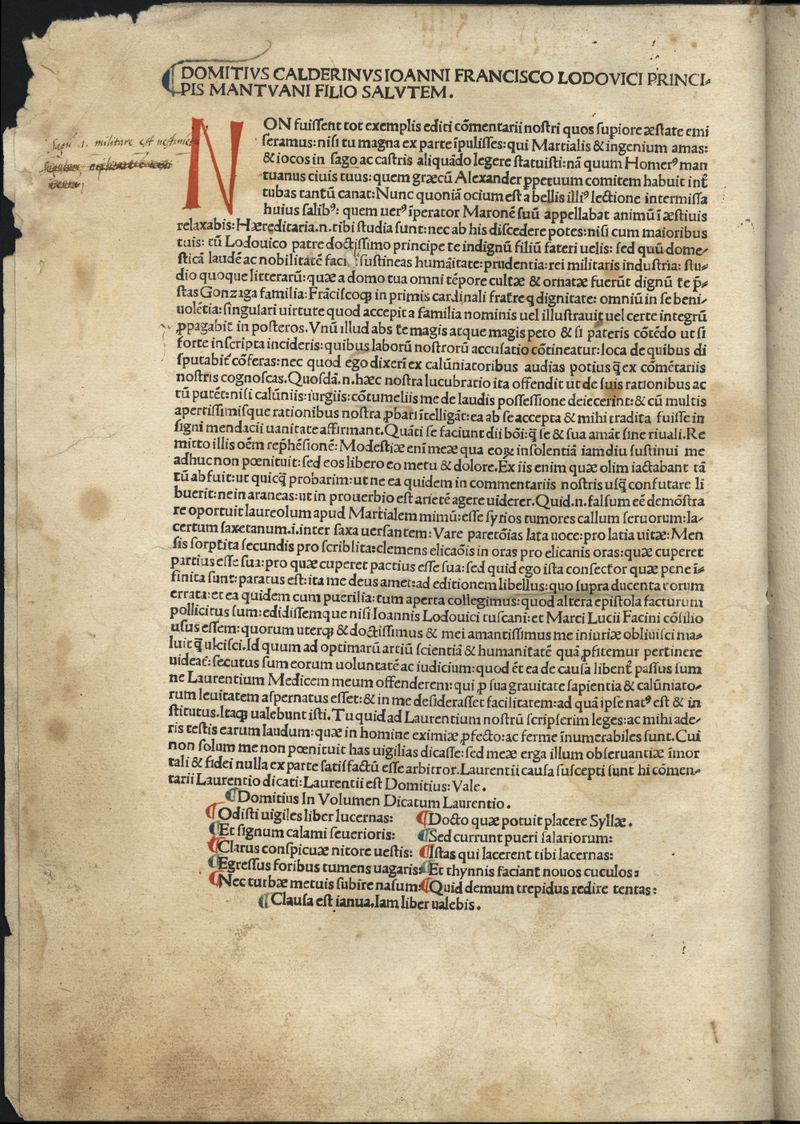 DOMITIVS CALDERINVS IOANNI FRANCISCO LODOVICI PRINCI⸗
PIS MANTVANI FILIO SALVTEM.
Sagū .i. militare est uestimētū
NON fuiſſent tot exemplis editi cōmentarii noſtri quos ſupiore æſtate emi
ſeramus: niſi tu magna ex parte īpuliſſes: qui Martialis & ingenium amas:
& iocos in ſago ac caſtris aliquādo legere ſtatuiſti: nā quum Homerꝰ man
tuanus ciuis tuus: quem græcū Alexander ꝑpetuum comitem habuit int̄
tubas tantū canat: Nunc quoniā ocium eſt a bellis illiꝰ lectione intermiſſa
huius ſalibꝰ: quem uerꝰ īperator Maronē ſuū appellabat animū ī æſtiuis
relaxabis: Hæreditaria.n.tibi ſtudia ſunt: nec ab his diſcedere potes: niſi cum maioribus
tuis: tū Lodouico patre doctiſſimo principe te indignū filiū fateri uelis: ſed quū dome⸗
ſticā laudē ac nobilitatē faci ſuſtineas humāitate: prudentia: rei militaris induſtria: ſtu⸗
dio quoque litterarū: quæ a domo tua omni tēpore cultæ & ornatæ fuerūt dignū te p̄⸗
ſtas Gonzaga familia: Frāciſcoqꝫ in primis cardinali fratre q dignitate: omniū in ſe beni⸗
uolētia: ſingulari uirtute quod accepit a familia nominis uel illuſtrauit uel certe integrū
ꝓpagabit in poſteros. Vnū illud abs te magis atque magis peto & ſi pateris cōtēdo ut ſi
forte in ſcripta incideris: quibus laborū noſtrorū accuſatio cōtineatur: loca de quibus di
ſputabit̄ cōferas: nec quod ego dixerī ex calūniatoribus audias potius q̄ ex cōmētariis
noſtris cognoſcas. Quoſdā.n.hæc noſtra lucubratio ita offendit ut de ſuis rationibus ac
tū putēt: niſi calūniis: iurgiis: cōtumeliis me de laudis poſſeſſione deiecerint: & cū multis
apertiſſimiſque rationibus noſtra ꝓbari ītelligāt: ea ab ſe accepta & mihi tradita fuiſſe in
ſigni mendacii uanitate affirmant. Quāti ſe faciunt dii bōi: q̄ ſe & ſua amāt ſine riuali. Re
mitto illis oēm rep̄hēſionē: Modeſtiæ enī meæ qua eoꝝ inſolentiā iamdiu ſuſtinui me
adhuc non pœnituit: ſed eos libero eo metu & dolore. Ex iis enim quæ olim iactabant tā
tū abfuit: ut quicq̄ probarim: ut ne ea quidem in commentariis noſtris uſq̄ confutare li
buerit: ne in araneas: ut in prouerbio eſt arietē agere uiderer. Quid.n.falſum eē demōſtra
re oportuit laureolum apud Martialem mimū: eſſe ſyrios tumores callum ſeruorum: la⸗
certum ſaxetanum.i.inter ſaxa uerſantem: Vare paretōias lata uoce: pro latia uitæ: Men
ſis ſorptita ſecundis pro ſcriblita: clemens elicaōis in oras pro elicanis oras: quæ cuperet
partius eſſe ſua: pro quæ cuperet pactius eſſe ſua: ſed quid ego iſta conſector quæ pene ī⸗
finita ſunt: paratus eſt: ita me deus amet: ad editionem libellus: quo ſupra ducenta eorum
errata: et ea quidem cum puerilia: tum aperta collegimus: quod altera epiſtola facturum
pollicitus ſum: edidiſſemque niſi Ioannis Lodouici tuſcani: et Marci Lucii Facini cōſilio
uſus eſſem: quorum uterqꝫ & doctiſſimus & mei amantiſſimus me iniuriæ obliuiſci ma⸗
luit q̄ ulciſci. Id quum ad optimarū artiū ſcientiā & humanitatē quā ꝓfitemur pertinere
uideāt: ſecutus ſum eorum uoluntatē ac iudicium: quod et ea de cauſa libent̄ paſſus ſum
ne Laurentium Medicem meum offenderem: qui ꝓ ſua grauitate ſapientia & calūniato⸗
rum leuitatem aſpernatus eſſet: & in me deſideraſſet facilitatem: ad quā ipſe natꝰ eſt & in
ſtitutus. Itaqꝫ ualebunt iſti. Tu quid ad Laurentium noſtrū ſcripſerim leges: ac mihi ade⸗
ris teſtis earum laudum: quæ in homine eximiæ ꝓfecto: ac ferme īnumerabiles ſunt. Cui
non ſolum me non pœnituit has uigilias dicaſſe: ſed meæ erga illum obſeruantiæ īmor
tali & fidei nulla ex parte ſatiſfactū eſſe arbitror. Laurentii cauſa ſuſcepti ſunt hi cōmen⸗
tarii Laurentio dicati: Laurentii eſt Domitius: Vale.
Domitius In Volumen Dicatum Laurentio.
Odiſti uigiles liber lucernas:
Et ſignum calami ſeuerioris:
Clarus conſpicuæ nitore ueſtis:
Egreſſus foribus tumens uagaris:
Nec turbæ metuis ſubire naſum:
Docto quæ potuit placere Syllæ.
Sed currunt pueri ſalariorum:
Iſtas qui lacerent tibi lacernas:
Et thynnis faciant nouos cuculos:
Quid demum trepidus redire tentas:
Clauſa eſt ianua. Iam liber ualebis.